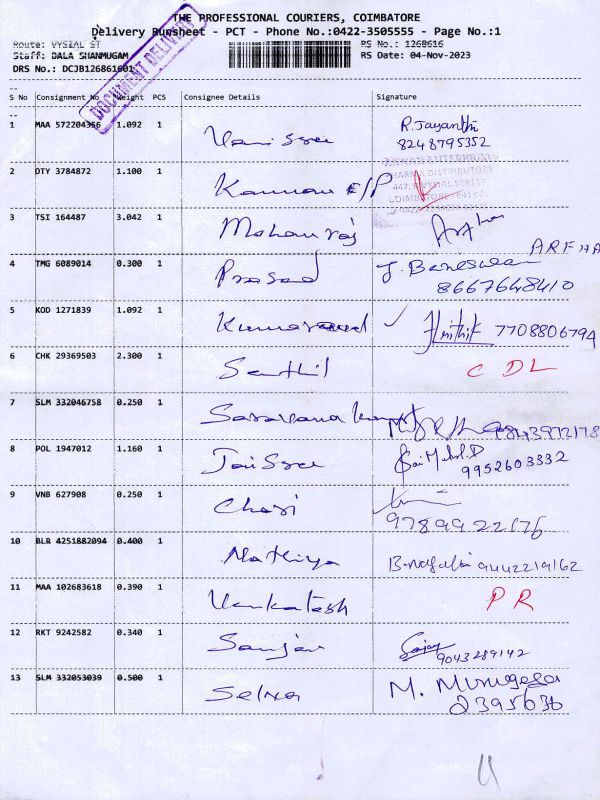 THE PROFESSIONAL COURIERS, COIMBATORE
Delivery Runsheet - PCT - Phone No.:0422-3505555 - Page No.:1
Route: VYSIAL ST
RS No.: 1268616
Staff: BALA SHANMUGAM
RS Date: 04-Nov-2023
DRS No.: DCJB126861601
DOCUMENT DELIVERY
S No Consignment No Weight PCS Consignee Details Signature
1 MAA 572204366 1.092 1 Vani sree R. Jayanthi
8248795352
2 DTY 3784872 1.100 1 Kannan E/P
PHARMA DISTRIBUTORS
447, VYSIAL STREET
COIMBATORE - 641 001
3 TSI 164487 3.042 1 Mohan raj
4 TMG 6089014 0.300 1 Prasad J.
8667648410
5 KOD 1271839 1.092 1 Hrithik 7708806794
6 CHK 29369503 2.300 1 Senthil CDL
7 SLM 332046758 0.250 1 Saravana kumar 9843972178
8 POL 1947012 1.160 1 Jai Sree
9952603332
9 VNB 627908 0.250 1 Chari
9789922676
10 BLR 4251882094 0.400 1 Nathiya 9442219162
11 MAA 102683618 0.390 1 Venkatesh PR
12 RKT 9242582 0.340 1 Sanjav Sanjay
9043289142
13 SLM 332053039 0.500 1 Selva M. Murugesa
2395636